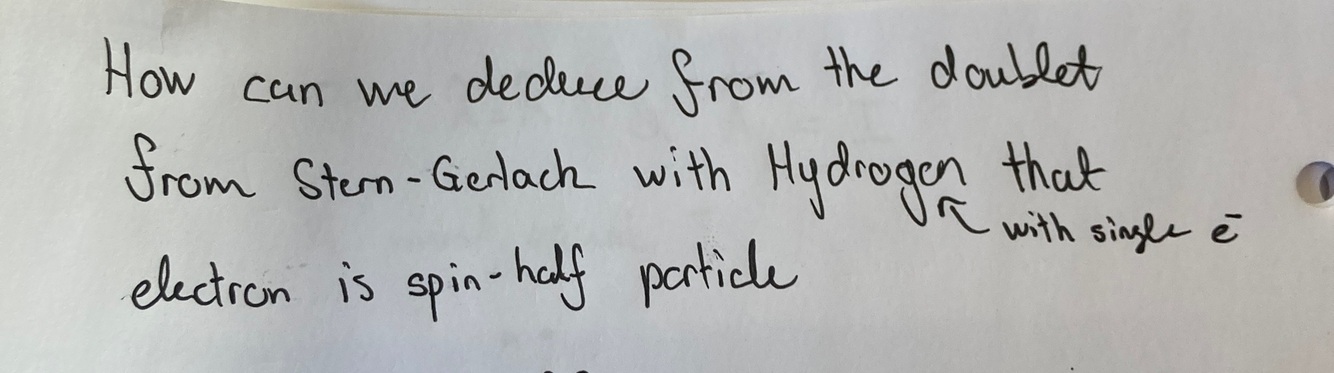 How can we deduce from the doublet
from Stern-Gerlach with Hydrogen that
↖ with single e⁻
electron is spin-half particle